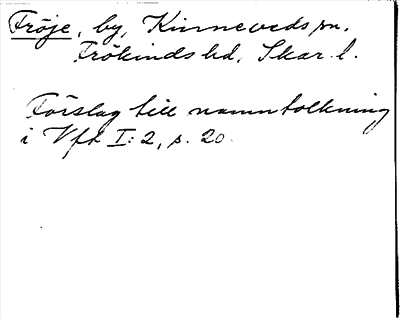 Fröje, by, Kinneveds sn.
Frökinds hd, Skar. l.
Förslag till namntolkning
i Vft I: 2, s. 20.